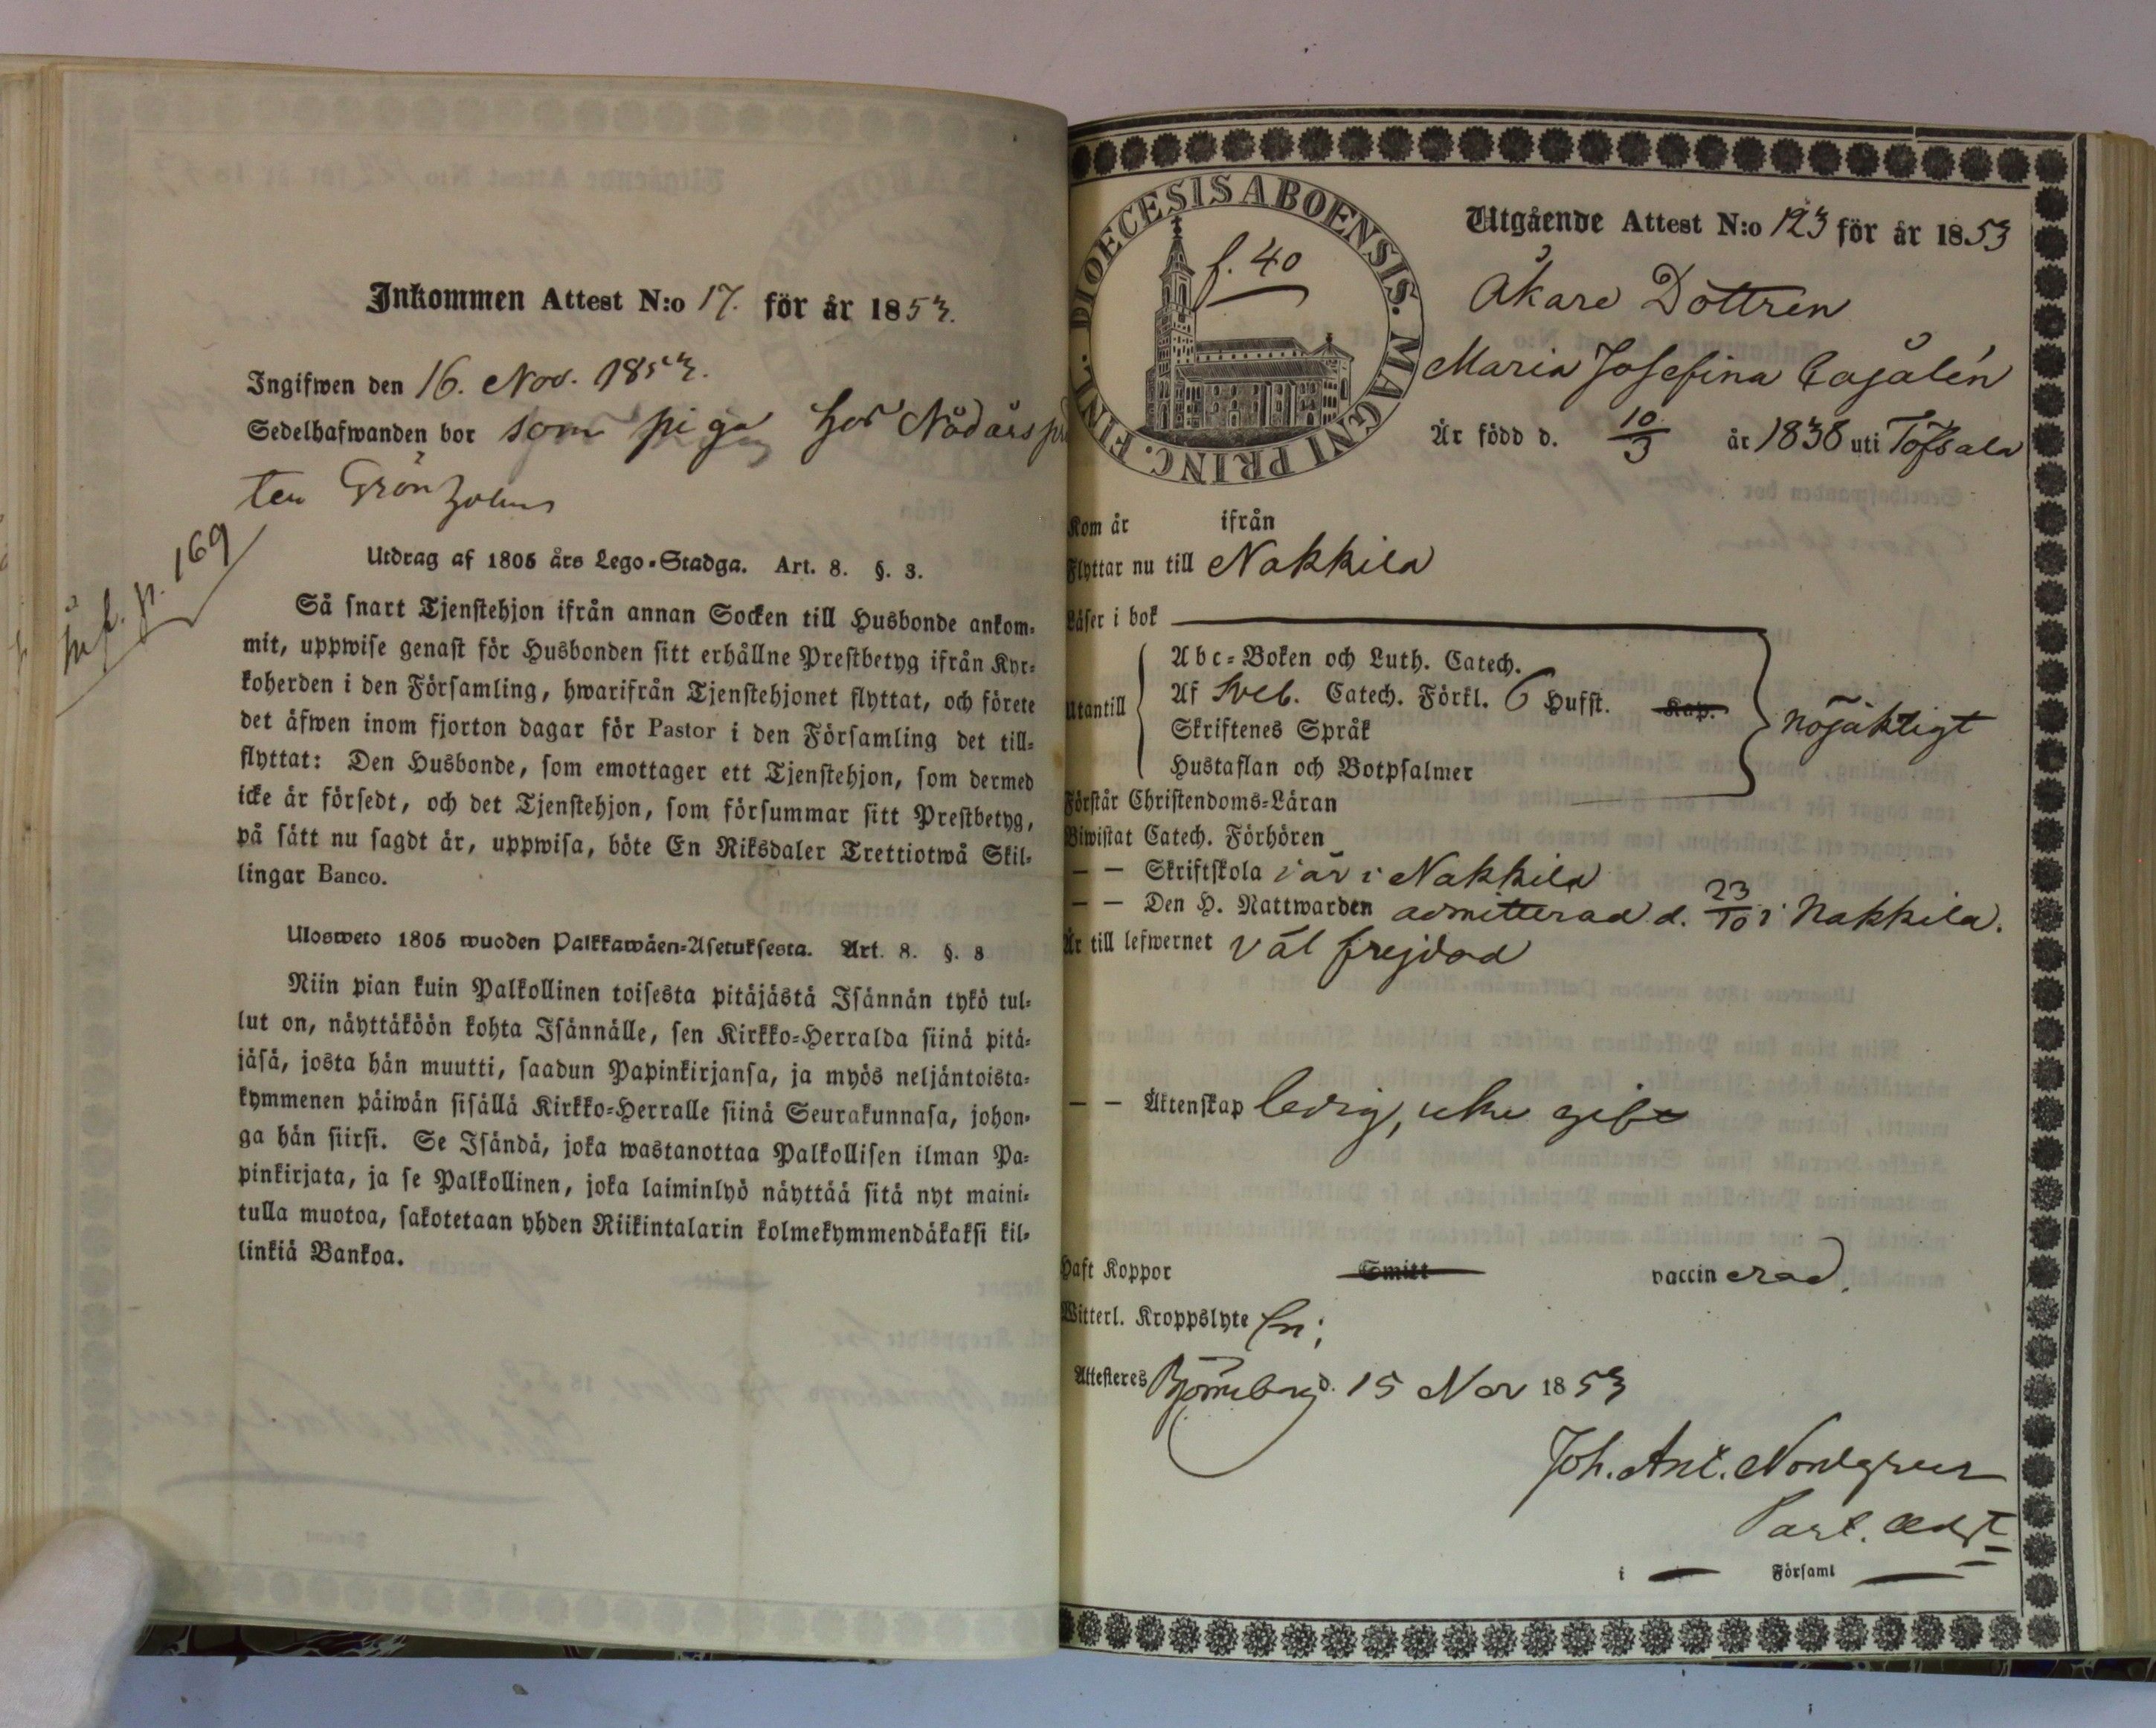 Inkommen Attest N:o 17. för år 1853.
Ingifwen den 16. Nov. 1853.
Sedelhafwanden bor som piga hos Nådårspre
ten Grönholm
inf. p. 169
Utdrag af 1805 års Lego-Stadga. Art. 8. §. 3.
Så snart Tjenstehjon ifrån annan Socken till Husbonde ankom-
mit, uppwise genast för Husbonden sitt erhållne Prestbetyg ifrån Kyr-
koherden i den Församling, hwarifrån Tjenstehjonet flyttat, och förete
det äfwen inom fjorton dagar för Pastor i den Församling det till-
flyttat: Den Husbonde, som emottager ett Tjenstehjon, som dermed
icke är försedt, och det Tjenstehjon, som försummar sitt Prestbetyg,
på sätt nu sagdt är, uppwisa, böte En Riksdaler Trettiotwå Skil-
lingar Banco.
Ulosweto 1805 wuoden Palkkawäen-Asetuksesta. Art. 8. §. 3
Niin pian kuin Palkollinen toisesta pitäjästä Isännän tykö tul-
lut on, näyttäköön kohta Isännälle, sen Kirkko-Herralda siinä pitä-
jäsä, josta hän muutti, saadun Papinkirjansa, ja myös neljäntoista-
kymmenen päiwän sisällä Kirkko-Herralle siinä Seurakunnasa, johon-
ga hän siirsi. Se Isändä, joka wastanottaa Palkollisen ilman Pa-
pinkirjata, ja se Palkollinen, joka laiminlyö näyttää sitä nyt maini-
tulla muotoa, sakotetaan yhden Riikintalarin kolmekymmendäkaksi kil-
linkiä Bankoa.
DIOECESIS ABOENSIS. MAGNI PRINC. FINL.
f. 40
Utgående Attest N:o 123 för år 1853
Åkare Dottren
Maria Josefina Cajalén
Är född d. 10/3 år 1838 uti Töfsala
Kom år ifrån
Flyttar nu till Nakkila
Läser i bok
Utantill
Abc-Boken och Luth. Catech.
Af Sveb. Catech. Förkl. 6 Hufst. Kap.
Skriftenes Språk
Hustaflan och Botpsalmer
nöjaktigt
Förstår Christendoms-Läran
Biwistat Catech. Förhören
— — Skriftskola i år i Nakkila
— — Den H. Nattwarden admitterad d. 23/10 i Nakkila.
Är till lefwernet väl frejdad
— — Äktenskap ledig, icke gift
Haft Koppor Smitt vaccinerad.
Witterl. Kroppslyte fri;
Attesteres Björneborg d. 15 Nov 1853
Joh. Ant. Nordgren
Past. Adjt
i — Församl —